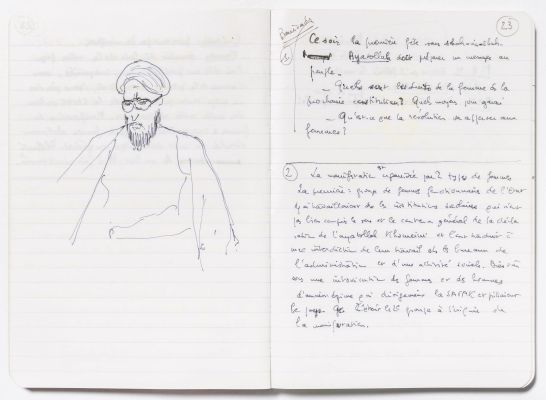 23
Ce soir la première fête sans
Ayatollah doit préparer un message au
peuple.
— Quels sont les droits de la femme ds la
prochaine constitution? Quel moyen pour
— Qu'est-ce que la révolution va apporter aux
femmes?
1
2
La manifestation est organisée par 2 types de femmes
La première : groupe de femmes fonctionnaires de l'Etat
qui travaillaient ds les institutions qui n'ont
pas bien compris le sens et le contenu général de la décla
ration de l'ayatollah Khomeini et l'ont traduit à
une interdiction de leur travail ds les bureaux de
l'administration et d'une activité sociale.
une intervention de femmes et de hommes
d'ancien régime qui dirigeaient la SAVAK et pillaient
le pays. C'était le 2è groupe à l'origine de
la manifestation.